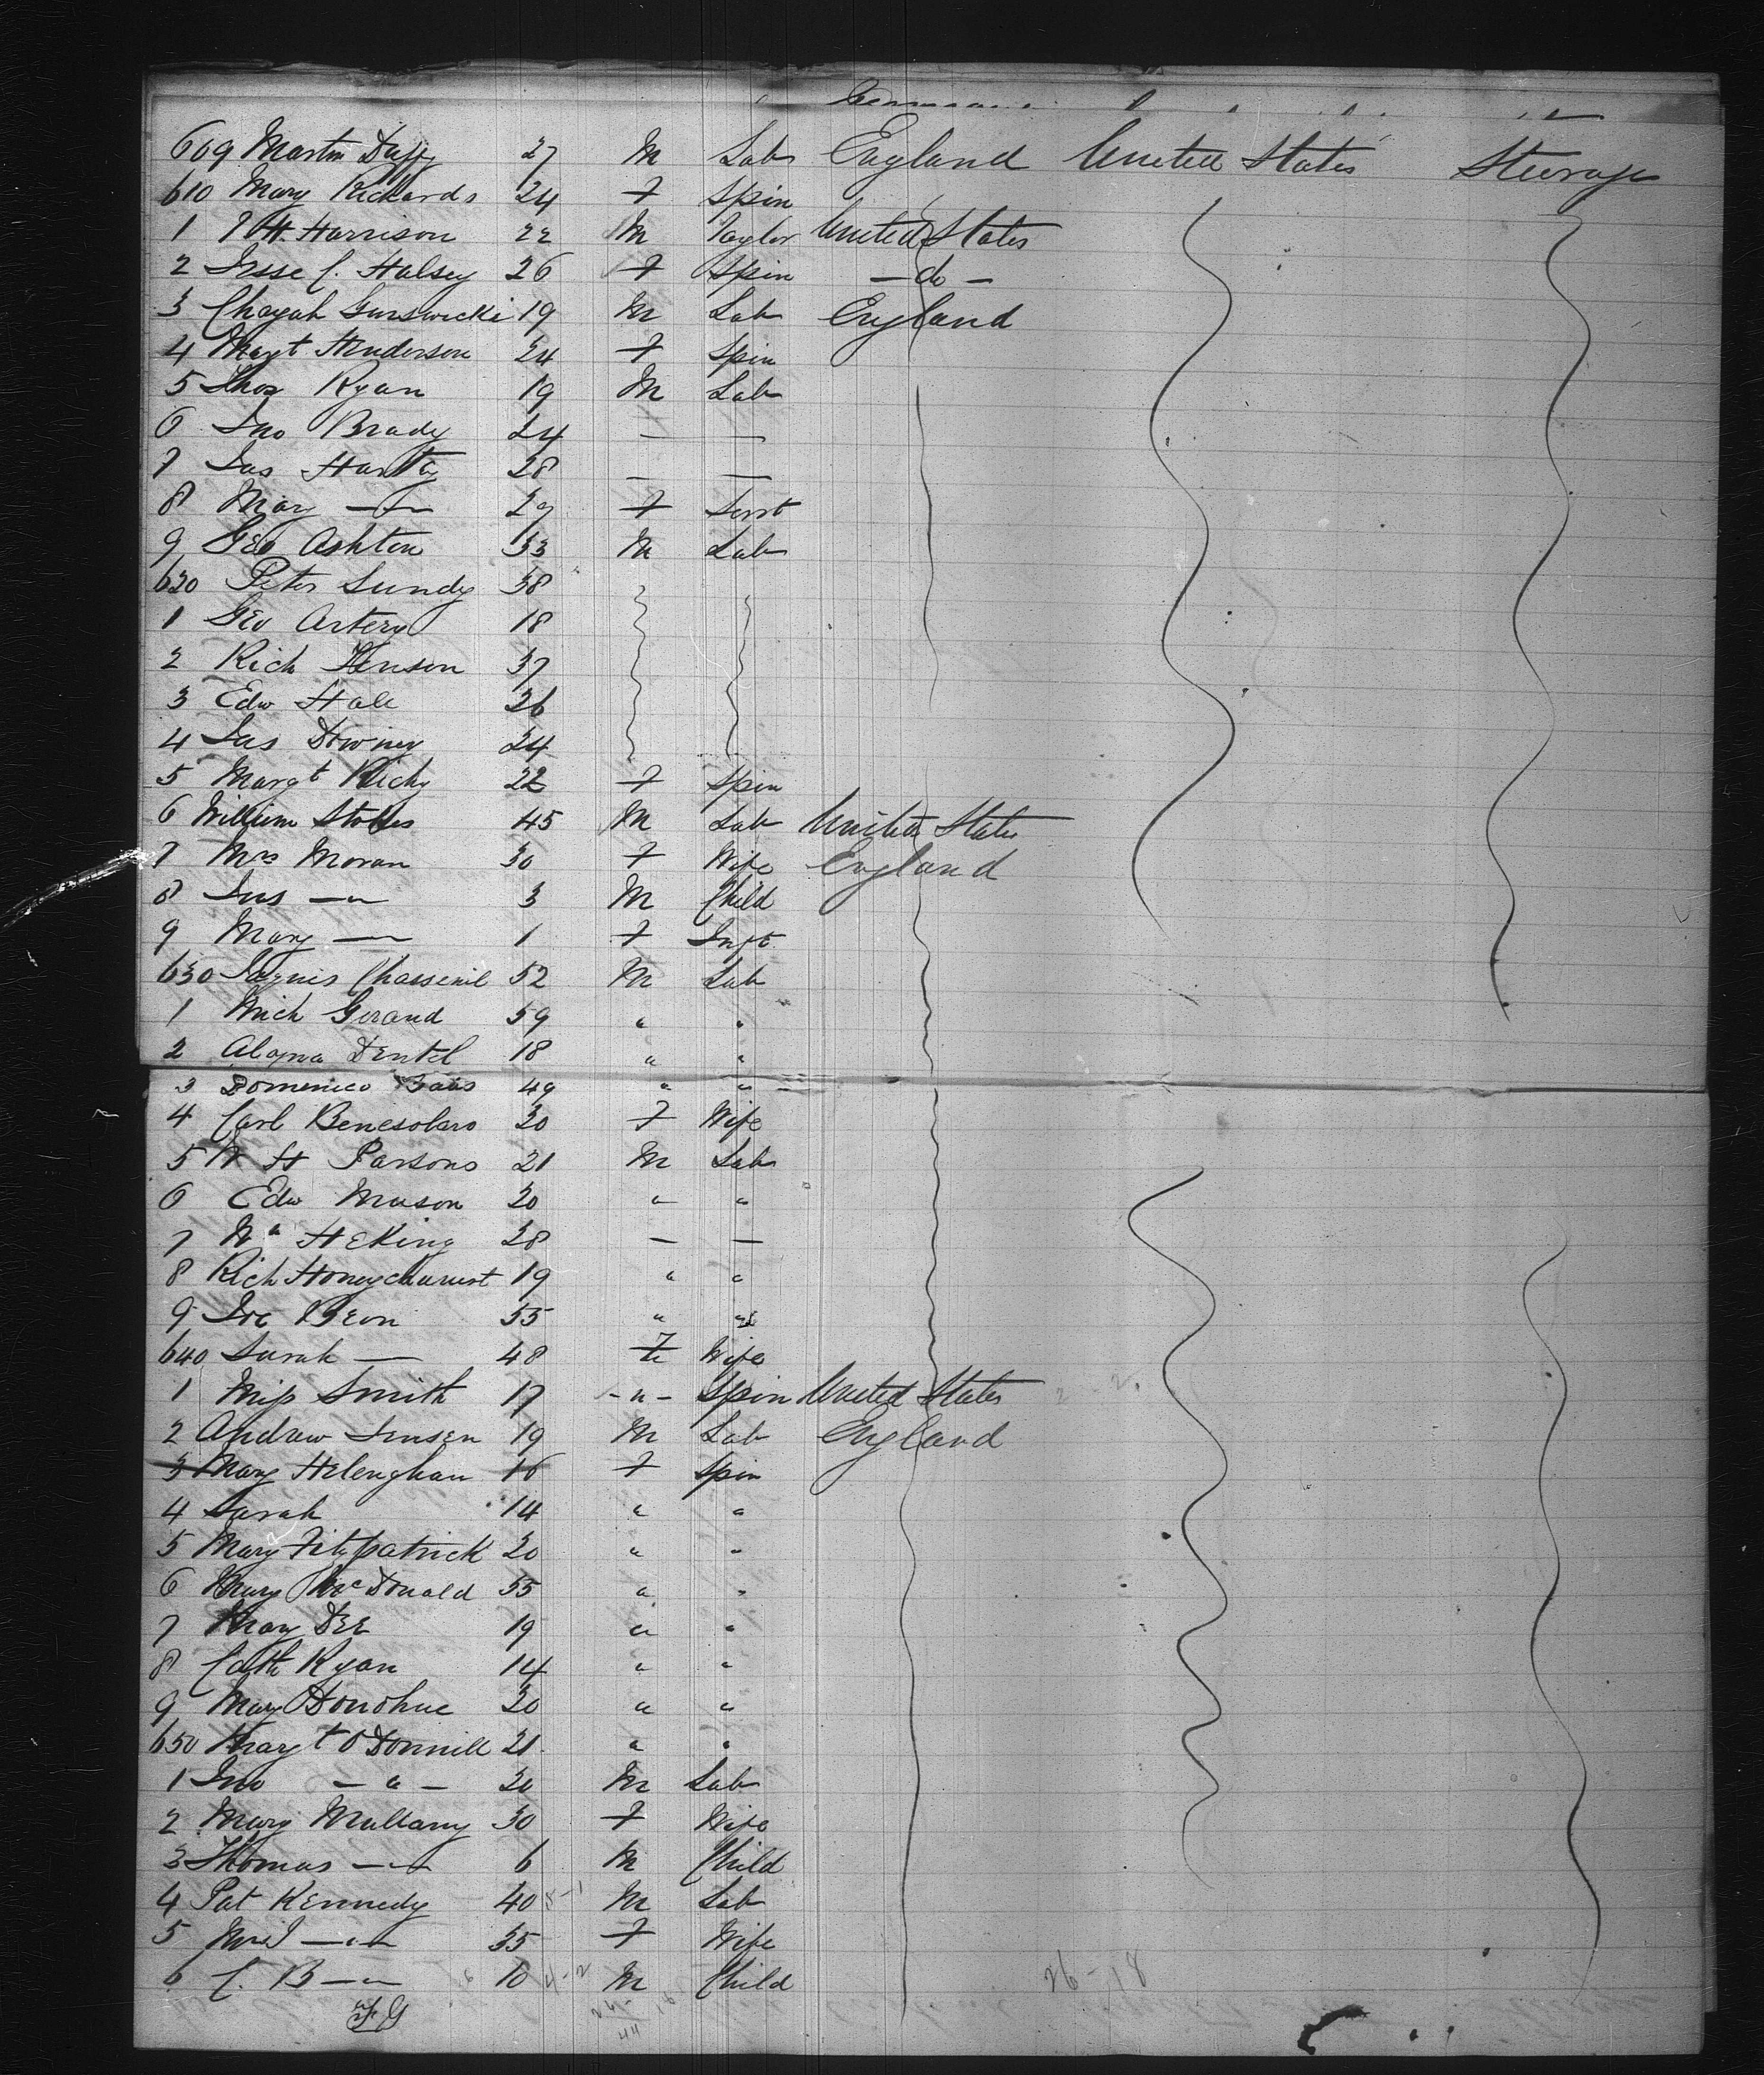 609 Martin Duffy 27 M Lab England United States Steerage
610 Mary Rickards 24 F Spin
1 Harrison 22 M Taylor United States
2 Jesse C. Halsey 26 F Spin — do —
3 Chayah 19 M Lab England
4 Margt Henderson 24 F Spin
5 Thos Ryan 19 M Lab
6 Jno Brady 24 — —
7 Jas Harty 28 — —
8 Mary — " — 29 F Servt
9 Geo Ashton 33 M Lab
620 Peter Lundy 38
1 Geo Artery 18
2 Rich Henson 37
3 Edw Hale 26
4 Jas Downey 24
5 Margt Richy 22 F Spin
6 William Stokes 45 M Lab United States
7 Mrs Moran 30 F Wife England
8 Jas — " — 3 M Child
9 Mary — " — 1 F Inft
630 52 M Lab
1 Mich Gerand 59 " "
2 Dentel 18 " "
3 Domenico 49 " "
4 Carl 30 F Wife
5 W H Parsons 21 M Lab
6 Edw Mason 20 " "
7 Wm H King 28 — —
8 Rich Honeychurst 19 " "
9 Beon 55 " "
640 Sarah — 48 F Wife
1 Miss Smith 17 - " - Spin United States
2 Andrew Jensen 19 M Lab England
3 Mary Helenghan 16 F Spin
4 Sarah 14 " "
5 Mary Fitzpatrick 20 " "
6 Mary McDonald 55 " "
7 Mary Dee 19 " "
8 Cath Ryan 14 " "
9 Mary Donohue 20 " "
650 Margt O'Donnell 21 " "
1 Jno — " — 20 M Lab
2 Mary Mullany 30 F Wife
3 Thomas — " — 6 M Child
4 Pat Kennedy 40 M Lab
5 — " — 35 F Wife
6 C. B — " — 10 M Child
26-18